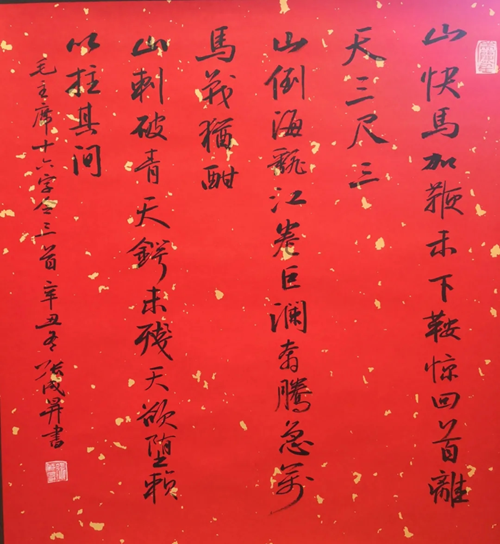 山快馬加鞭未下鞍惊回首離
天三尺三
山倒海翻江卷巨瀾奔騰急萬
馬戰猶酣
山刺破青天鍔未殘天欲堕賴
以拄其间
毛主席十六字令三首辛丑冬書